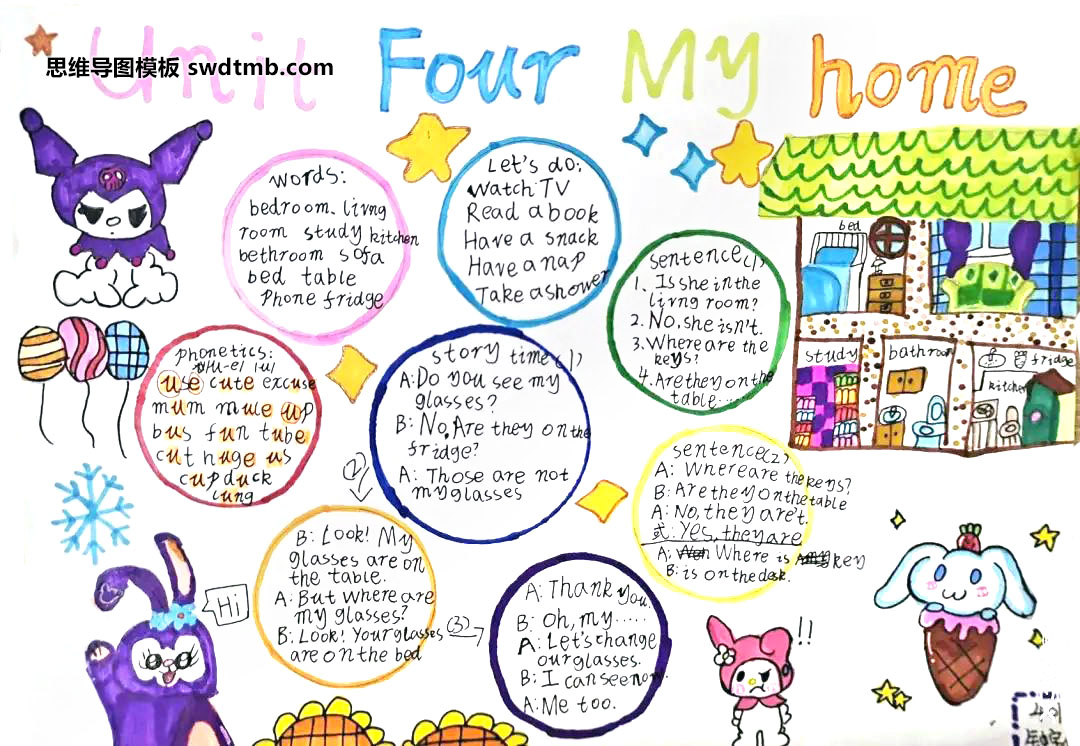 Unit Four My home
思维导图模板 swdtmb.com
words:
bedroom. livng
room study kitchen
bethroom sofa
bed table
Phone fridge
Let's do:
Watch TV
Read a book
Have a snack
Have a nap
Take a shower
sentence(1)
1. Is she in the
livng room?
2. No, she isn't.
3. Where are the
keys?
4. Are they on the
table......
bed
study
bathroom
fridge
kitchen
phonetics:
use cute excuse
mum mule up
bus fun tube
cut huge us
cup duck
lung
story time(1)
A: Do you see my
glasses?
B: No, Are they on the
fridge?
A: Those are not
my glasses
(2)
B: Look! My
glasses are on
the table.
A: But where are
my glasses?
B: Look! Your glasses
are on the bed
(3)
A: Thank you.
B: Oh, my......
A: Let's change
our glasses.
B: I can see now
A: Me too.
sentence(2)
A: Where are the keys?
B: Are they on the table
A: No, they are't.
或: Yes, they are
A: Where is key
B: is on the desk.
Hi
!!